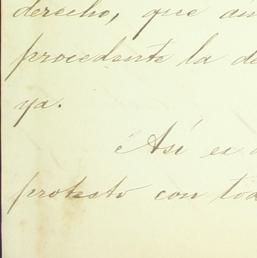 derecho, que aún
procedente la de
ya.
Así es
protesto con tod